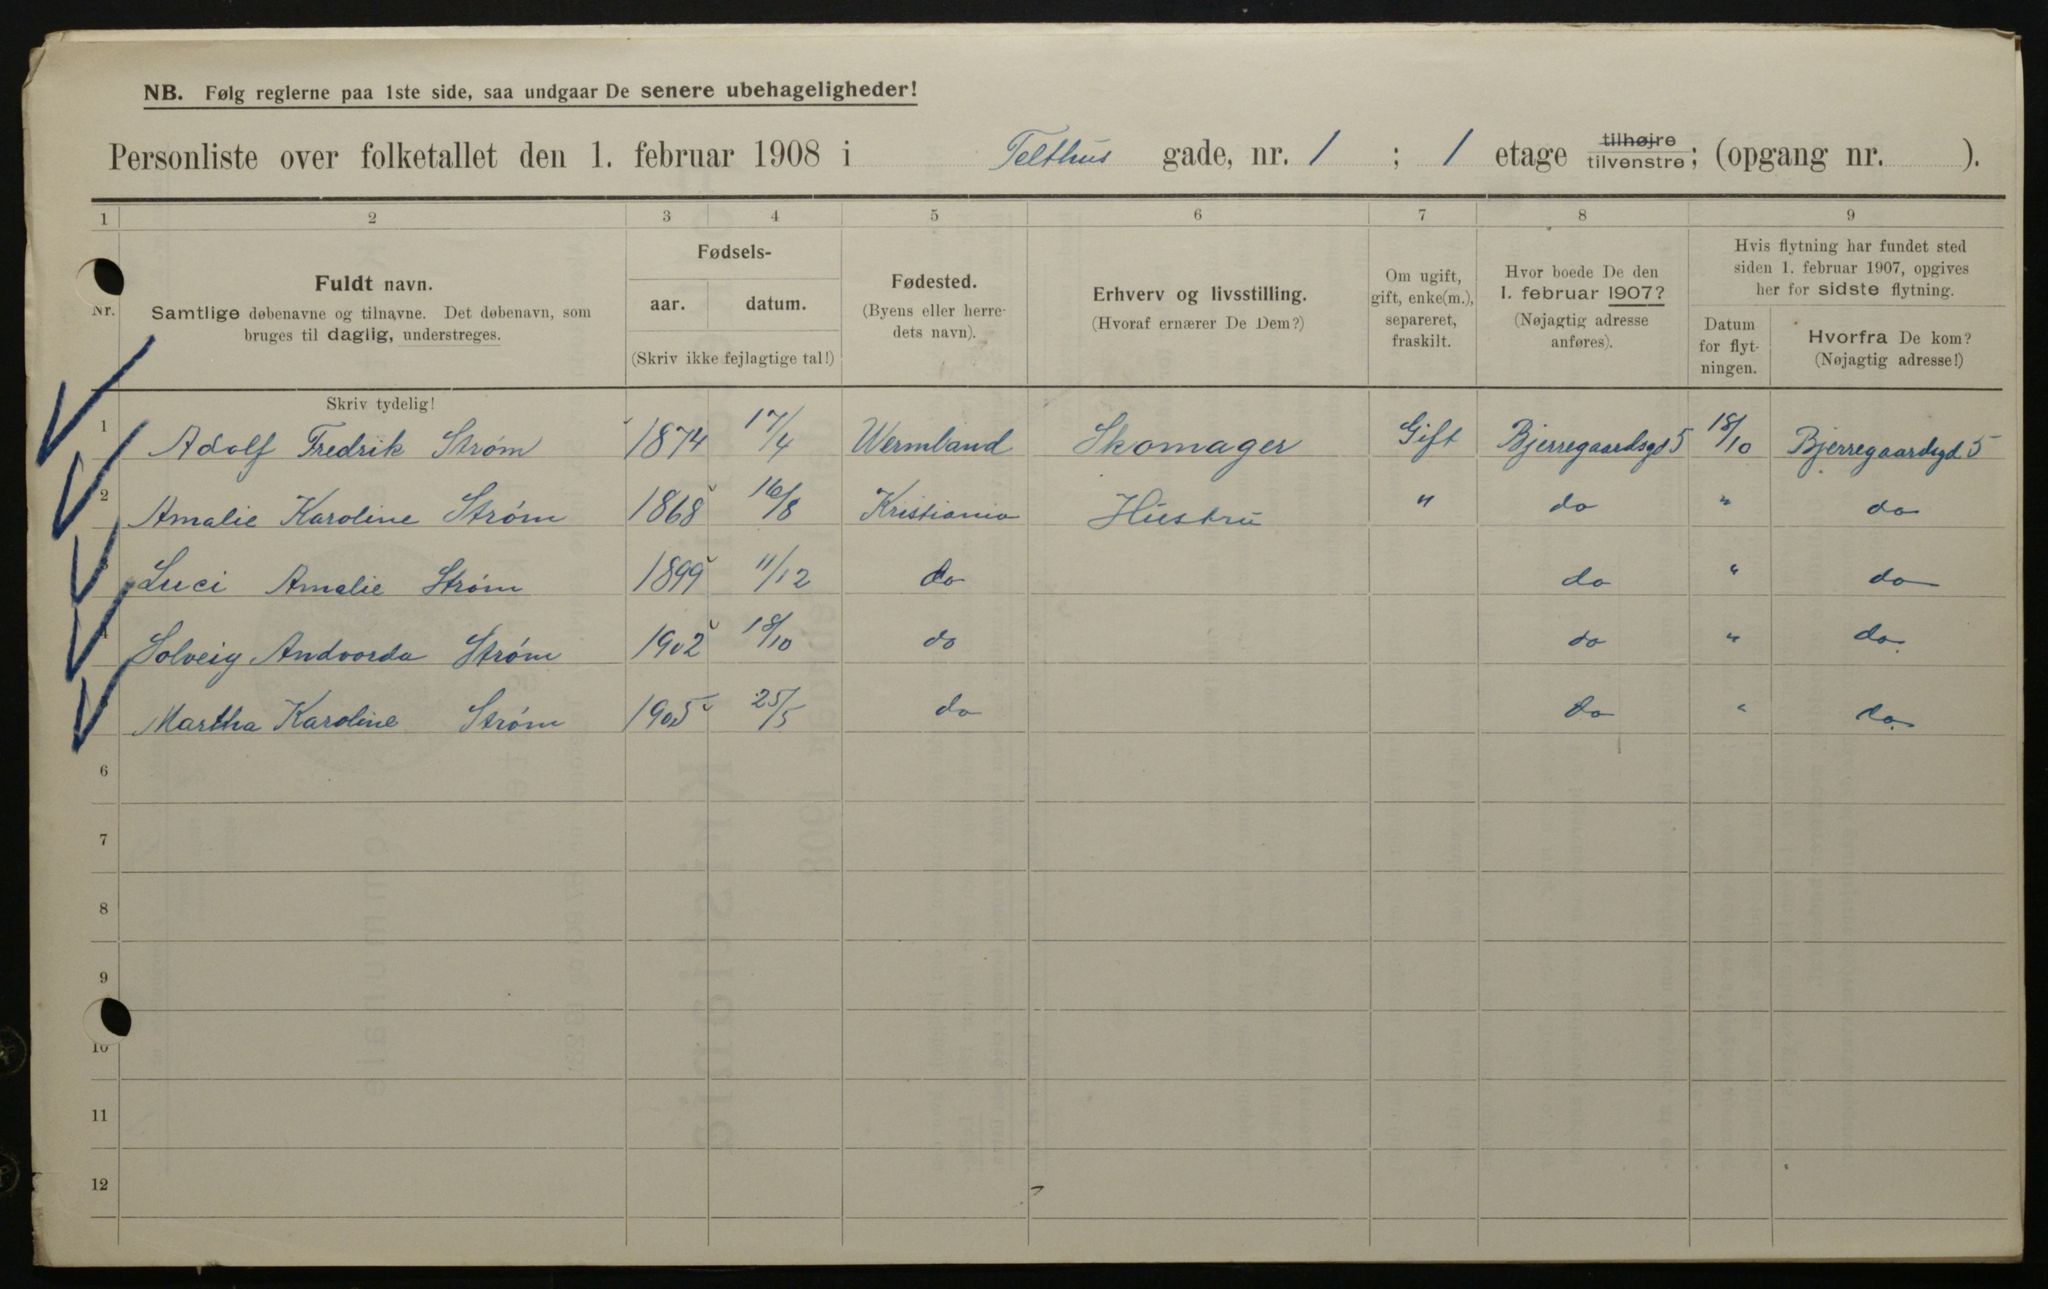 NB. Følg reglerne paa 1ste side, saa undgaar De senere ubehageligheder!
Personliste over folketallet den 1. februar 1908 i Telthus gade, nr. 1 ; 1 etage tilhøjre tilvenstre; (opgang nr. ).
1 2 3 4 5 6 7 8 9
Nr.
Fuldt navn.
Samtlige døbenavne og tilnavne. Det døbenavn, som
bruges til daglig, understreges.
Skriv tydelig!
Fødsels-
aar. datum.
(Skriv ikke fejlagtige tal!)
Fødested.
(Byens eller herre-
dets navn).
Erhverv og livsstilling.
(Hvoraf ernærer De Dem?)
Om ugift,
gift, enke(m.),
separeret,
fraskilt.
Hvor boede De den
1. februar 1907?
(Nøjagtig adresse
anføres).
Hvis flytning har fundet sted
siden 1. februar 1907, opgives
her for sidste flytning.
Datum
for flyt-
ningen.
Hvorfra De kom?
(Nøjagtig adresse!)
1 Adolf Fredrik Strøm 1874 17/4 Wermland Skomager Gift Bjerregaardsgd 5 18/10 Bjerregaardsgd 5
2 Amalie Karoline Strøm 1868 16/8 Kristiania Hustru " do " do
3 Luci Amalie Strøm 1899 11/12 do do " do
4 Solveig Andvorda Strøm 1902 18/10 do do " do
Martha Karoline Strøm 1905 25/5 do do " do
6
7
8
9
10
11
12